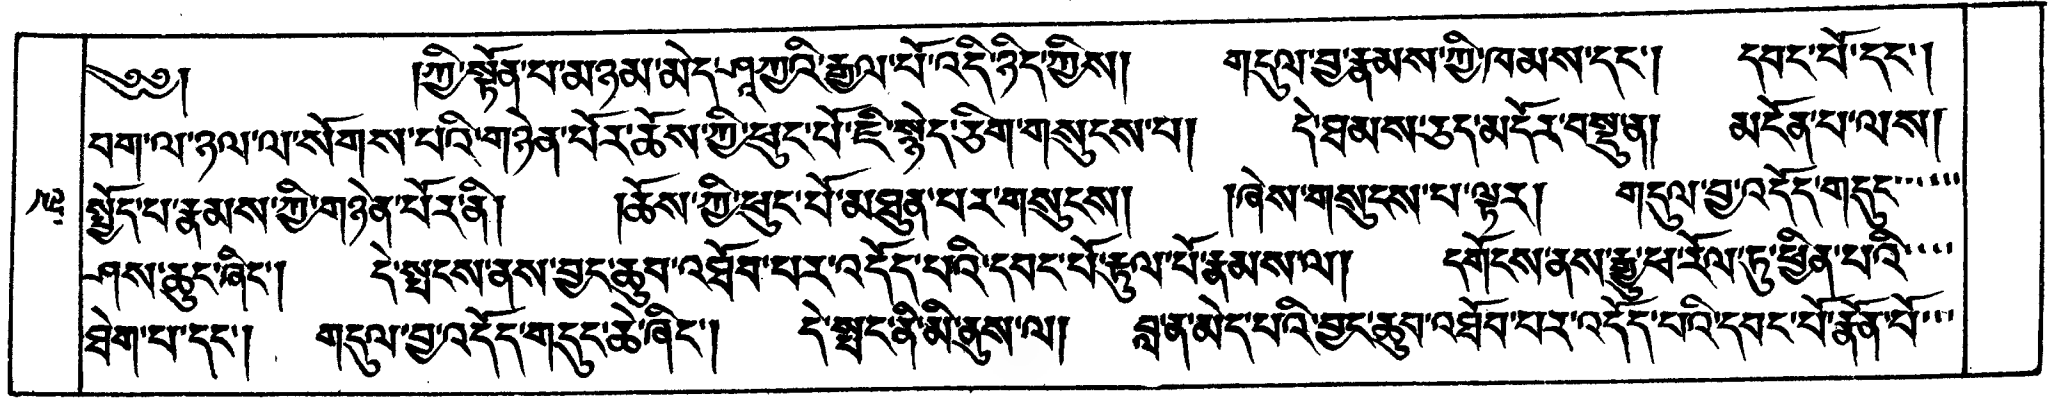 ༄༅། །ཀྱི་སྟོན་པ་མཉམ་མེད་ཤཱཀྱའི་རྒྱལ་པོ་འདི་ཉིད་ཀྱིས། གདུལ་བྱ་རྣམས་ཀྱི་ཁམས་དང་། དབང་པོ་དང་།
བག་ལ་ཉལ་ལ་སོགས་པའི་གཉེན་པོར་ཆོས་ཀྱི་ཕུང་པོ་ཇི་སྙེད་ཅིག་གསུངས་པ། དེ་ཐམས་ཅད་མདོར་བསྡུན། མངོན་པ་ལས།
སྤྱོད་པ་རྣམས་ཀྱི་གཉེན་པོར་ནི། །ཆོས་ཀྱི་ཕུང་པོ་མཐུན་པར་གསུངས། །ཞེས་གསུངས་པ་ལྟར། གདུལ་བྱ་འདོད་གདུང་
ཤས་ཆུང་ཞིང་། དེ་སྤངས་ནས་བྱང་ཆུབ་འཐོབ་པར་འདོད་པའི་དབང་པོ་རྟུལ་པོ་རྣམས་ལ། དགོངས་ནས་རྒྱུ་ཕ་རོལ་ཏུ་ཕྱིན་པའི་
ཐེག་པ་དང་། གདུལ་བྱ་འདོད་གདུང་ཆེ་ཞིང་། དེ་སྤང་ནི་མི་ནུས་ལ། བླ་ན་མེད་པའི་བྱང་ཆུབ་འཐོབ་པར་འདོད་པའི་དབང་པོ་རྣོན་པོ་